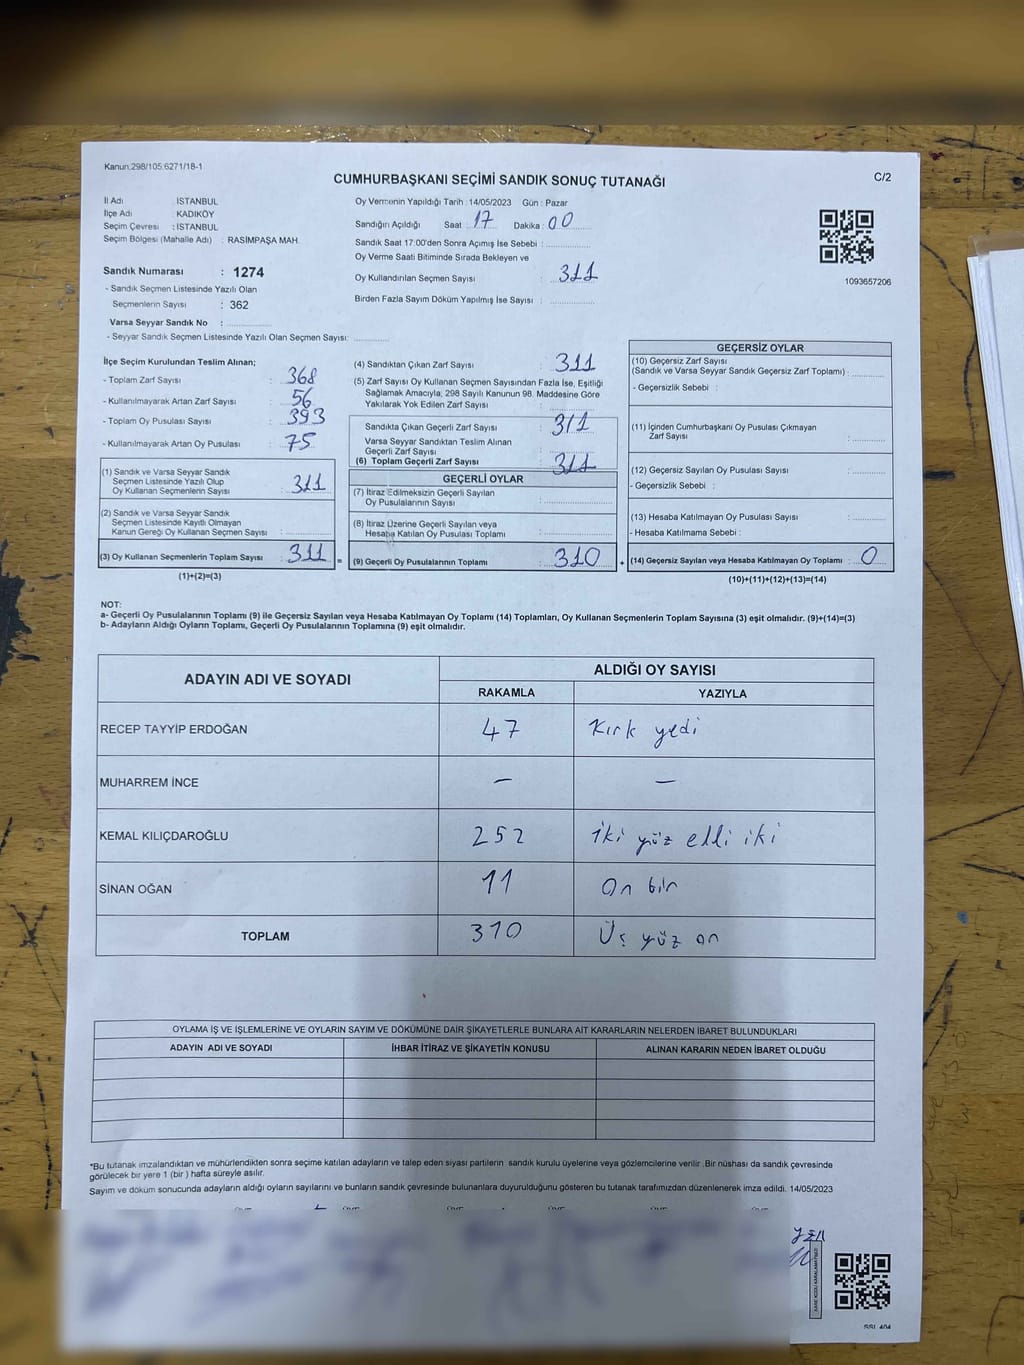 Kanun:298/105:6271/18-1
CUMHURBAŞKANI SEÇİMİ SANDIK SONUÇ TUTANAĞI
C/2
İl Adı : İSTANBUL
İlçe Adı : KADIKÖY
Seçim Çevresi : İSTANBUL
Seçim Bölgesi (Mahalle Adı) : RASİMPAŞA MAH.
Oy Vermenin Yapıldığı Tarih : 14/05/2023 Gün : Pazar
Sandığın Açıldığı Saat : 17 Dakika : 00
Sandık Saat 17:00'den Sonra Açımış İse Sebebi :
Oy Verme Saati Bitiminde Sırada Bekleyen ve
Oy Kullandırılan Seçmen Sayısı : 311
Birden Fazla Sayım Döküm Yapılmış İse Sayısı :
1093657206
Sandık Numarası : 1274
- Sandık Seçmen Listesinde Yazılı Olan
Seçmenlerin Sayısı : 362
Varsa Seyyar Sandık No :
- Seyyar Sandık Seçmen Listesinde Yazılı Olan Seçmen Sayısı:
İlçe Seçim Kurulundan Teslim Alınan;
- Toplam Zarf Sayısı : 368
- Kullanılmayarak Artan Zarf Sayısı : 56
- Toplam Oy Pusulası Sayısı : 393
- Kullanılmayarak Artan Oy Pusulası : 75
(1) Sandık ve Varsa Seyyar Sandık
Seçmen Listesinde Yazılı Olup
Oy Kullanan Seçmenlerin Sayısı : 311
(2) Sandık ve Varsa Seyyar Sandık
Seçmen Listesinde Kayıtlı Olmayan
Kanun Gereği Oy Kullanan Seçmen Sayısı :
(3) Oy Kullanan Seçmenlerin Toplam Sayısı : 311
(1)+(2)=(3)
(4) Sandıktan Çıkan Zarf Sayısı : 311
(5) Zarf Sayısı Oy Kullanan Seçmen Sayısından Fazla İse, Eşitliği
Sağlamak Amacıyla; 298 Sayılı Kanunun 98. Maddesine Göre
Yakılarak Yok Edilen Zarf Sayısı :
Sandıkta Çıkan Geçerli Zarf Sayısı : 311
Varsa Seyyar Sandıktan Teslim Alınan
Geçerli Zarf Sayısı :
(6) Toplam Geçerli Zarf Sayısı : 311
GEÇERLİ OYLAR
(7) İtiraz Edilmeksizin Geçerli Sayılan
Oy Pusulalarının Sayısı :
(8) İtiraz Üzerine Geçerli Sayılan veya
Hesaba Katılan Oy Pusulası Toplamı :
= (9) Geçerli Oy Pusulalarının Toplamı : 310
GEÇERSİZ OYLAR
(10) Geçersiz Zarf Sayısı
(Sandık ve Varsa Seyyar Sandık Geçersiz Zarf Toplamı) :
- Geçersizlik Sebebi :
(11) İçinden Cumhurbaşkanı Oy Pusulası Çıkmayan
Zarf Sayısı :
(12) Geçersiz Sayılan Oy Pusulası Sayısı :
- Geçersizlik Sebebi :
(13) Hesaba Katılmayan Oy Pusulası Sayısı :
- Hesaba Katılmama Sebebi :
+ (14) Geçersiz Sayılan veya Hesaba Katılmayan Oy Toplamı : 0
(10)+(11)+(12)+(13)=(14)
NOT:
a- Geçerli Oy Pusulalarının Toplamı (9) ile Geçersiz Sayılan veya Hesaba Katılmayan Oy Toplamı (14) Toplamları, Oy Kullanan Seçmenlerin Toplam Sayısına (3) eşit olmalıdır. (9)+(14)=(3)
b- Adayların Aldığı Oyların Toplamı, Geçerli Oy Pusulalarının Toplamına (9) eşit olmalıdır.
ADAYIN ADI VE SOYADI
ALDIĞI OY SAYISI
RAKAMLA YAZIYLA
RECEP TAYYİP ERDOĞAN 47 Kırk yedi
MUHARREM İNCE – –
KEMAL KILIÇDAROĞLU 252 İki yüz elli iki
SİNAN OĞAN 11 On bir
TOPLAM 310 Üç yüz on
OYLAMA İŞ VE İŞLEMLERİNE VE OYLARIN SAYIM VE DÖKÜMÜNE DAİR ŞİKAYETLERLE BUNLARA AİT KARARLARIN NELERDEN İBARET BULUNDUKLARI
ADAYIN ADI VE SOYADI İHBAR İTİRAZ VE ŞİKAYETİN KONUSU ALINAN KARARIN NEDEN İBARET OLDUĞU
*Bu tutanak imzalandıktan ve mühürlendikten sonra seçime katılan adayların ve talep eden siyasi partilerin sandık kurulu üyelerine veya gözlemcilerine verilir .Bir nüshası da sandık çevresinde
görülecek bir yere 1 (bir ) hafta süreyle asılır.
Sayım ve döküm sonucunda adayların aldığı oyların sayılarını ve bunların sandık çevresinde bulunanlara duyurulduğunu gösteren bu tutanak tarafımızdan düzenlenerek imza edildi. 14/05/2023